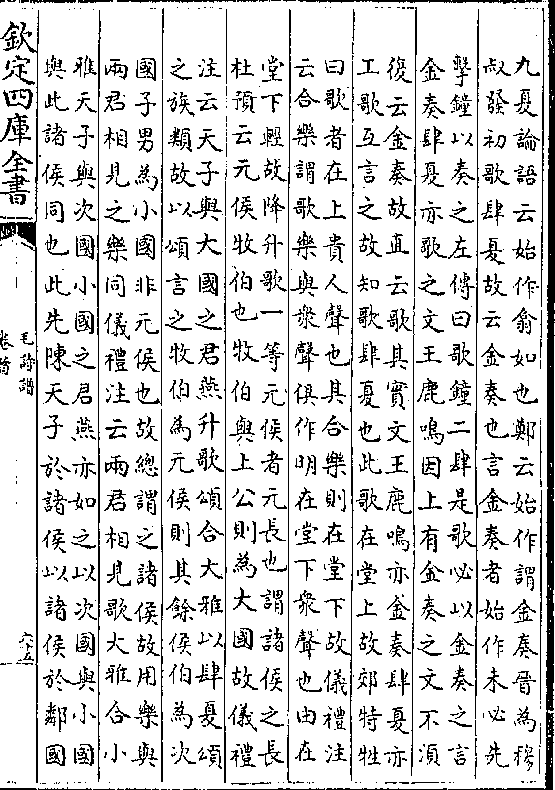 九夏論語云始作翕如也鄭云始作謂金奏晉為穆
叔發初歌肆夏故云金奏也言金奏者始作未必先
擊鐘以奏之左傳曰歌鐘二肆是歌必以金奏之言
金奏肆夏亦歌之文王鹿鳴因上有金奏之文不湏
復云金奏故直云歌其實文王鹿鳴亦金奏肆夏亦
工歌互言之故知歌肆夏也此歌在堂上故郊特牲
曰歌者在上貴人聲也其合樂則在堂下故儀禮注
云合樂謂歌樂與衆聲俱作明在堂下衆聲也由在
堂下輕故降升歌一等元侯者元長也謂諸侯之長
杜預云元侯牧伯也牧伯與上公則為大國故儀禮
注云天子與大國之君燕升歌頌合大雅以肆夏頌
之族類故以頌言之牧伯為元侯則其餘侯伯為次
國子男為小國非元侯也故總謂之諸侯故用樂與
兩君相見之樂同儀禮注云兩君相見歌大雅合小
雅天子與次國小國之君燕亦如之以次國與小國
與此諸侯同也此先陳天子於諸侯以諸侯於鄰國
欽定四庫全書
毛詩譜
卷首
六十五